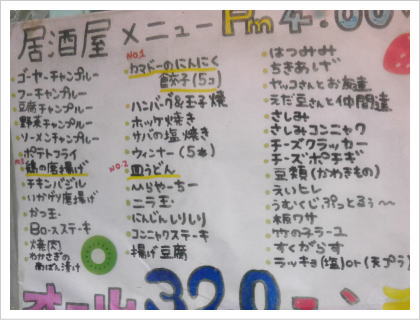 居酒屋 メニュー Pm 4.00
ゴーヤーチャンプルー
フーチャンプルー
豆腐チャンプルー
野菜チャンプルー
ソーメンチャンプルー
ポテトフライ
鶏の唐揚げ
チキンバジル
いかゲソ唐揚げ
かつ玉
Bo-ステーキ
焼肉
わかさぎの
南ばん漬け
NO.1
カマドーのにんにく
餃子(5コ)
ハンバーグ&玉子焼
ホッケ焼き
サバの塩焼き
ウィンナー(5本)
NO.2
皿うどん
へらやーちー
ニラ玉
にんじんしりしり
コンニャクステーキ
揚げ豆腐
はつみみ
ちきあげ
ヤッコさんとお友達
えだ豆さんと仲間達
さしみ
さしみコンニャク
チーズクラッカー
チーズポテギ
豆類(かわきもの)
えいヒレ
うむくじぷっとるぅ〜
板ワサ
竹の子ラー油
すくがらす
ラッキョ(塩)or(天プラ)
オール320